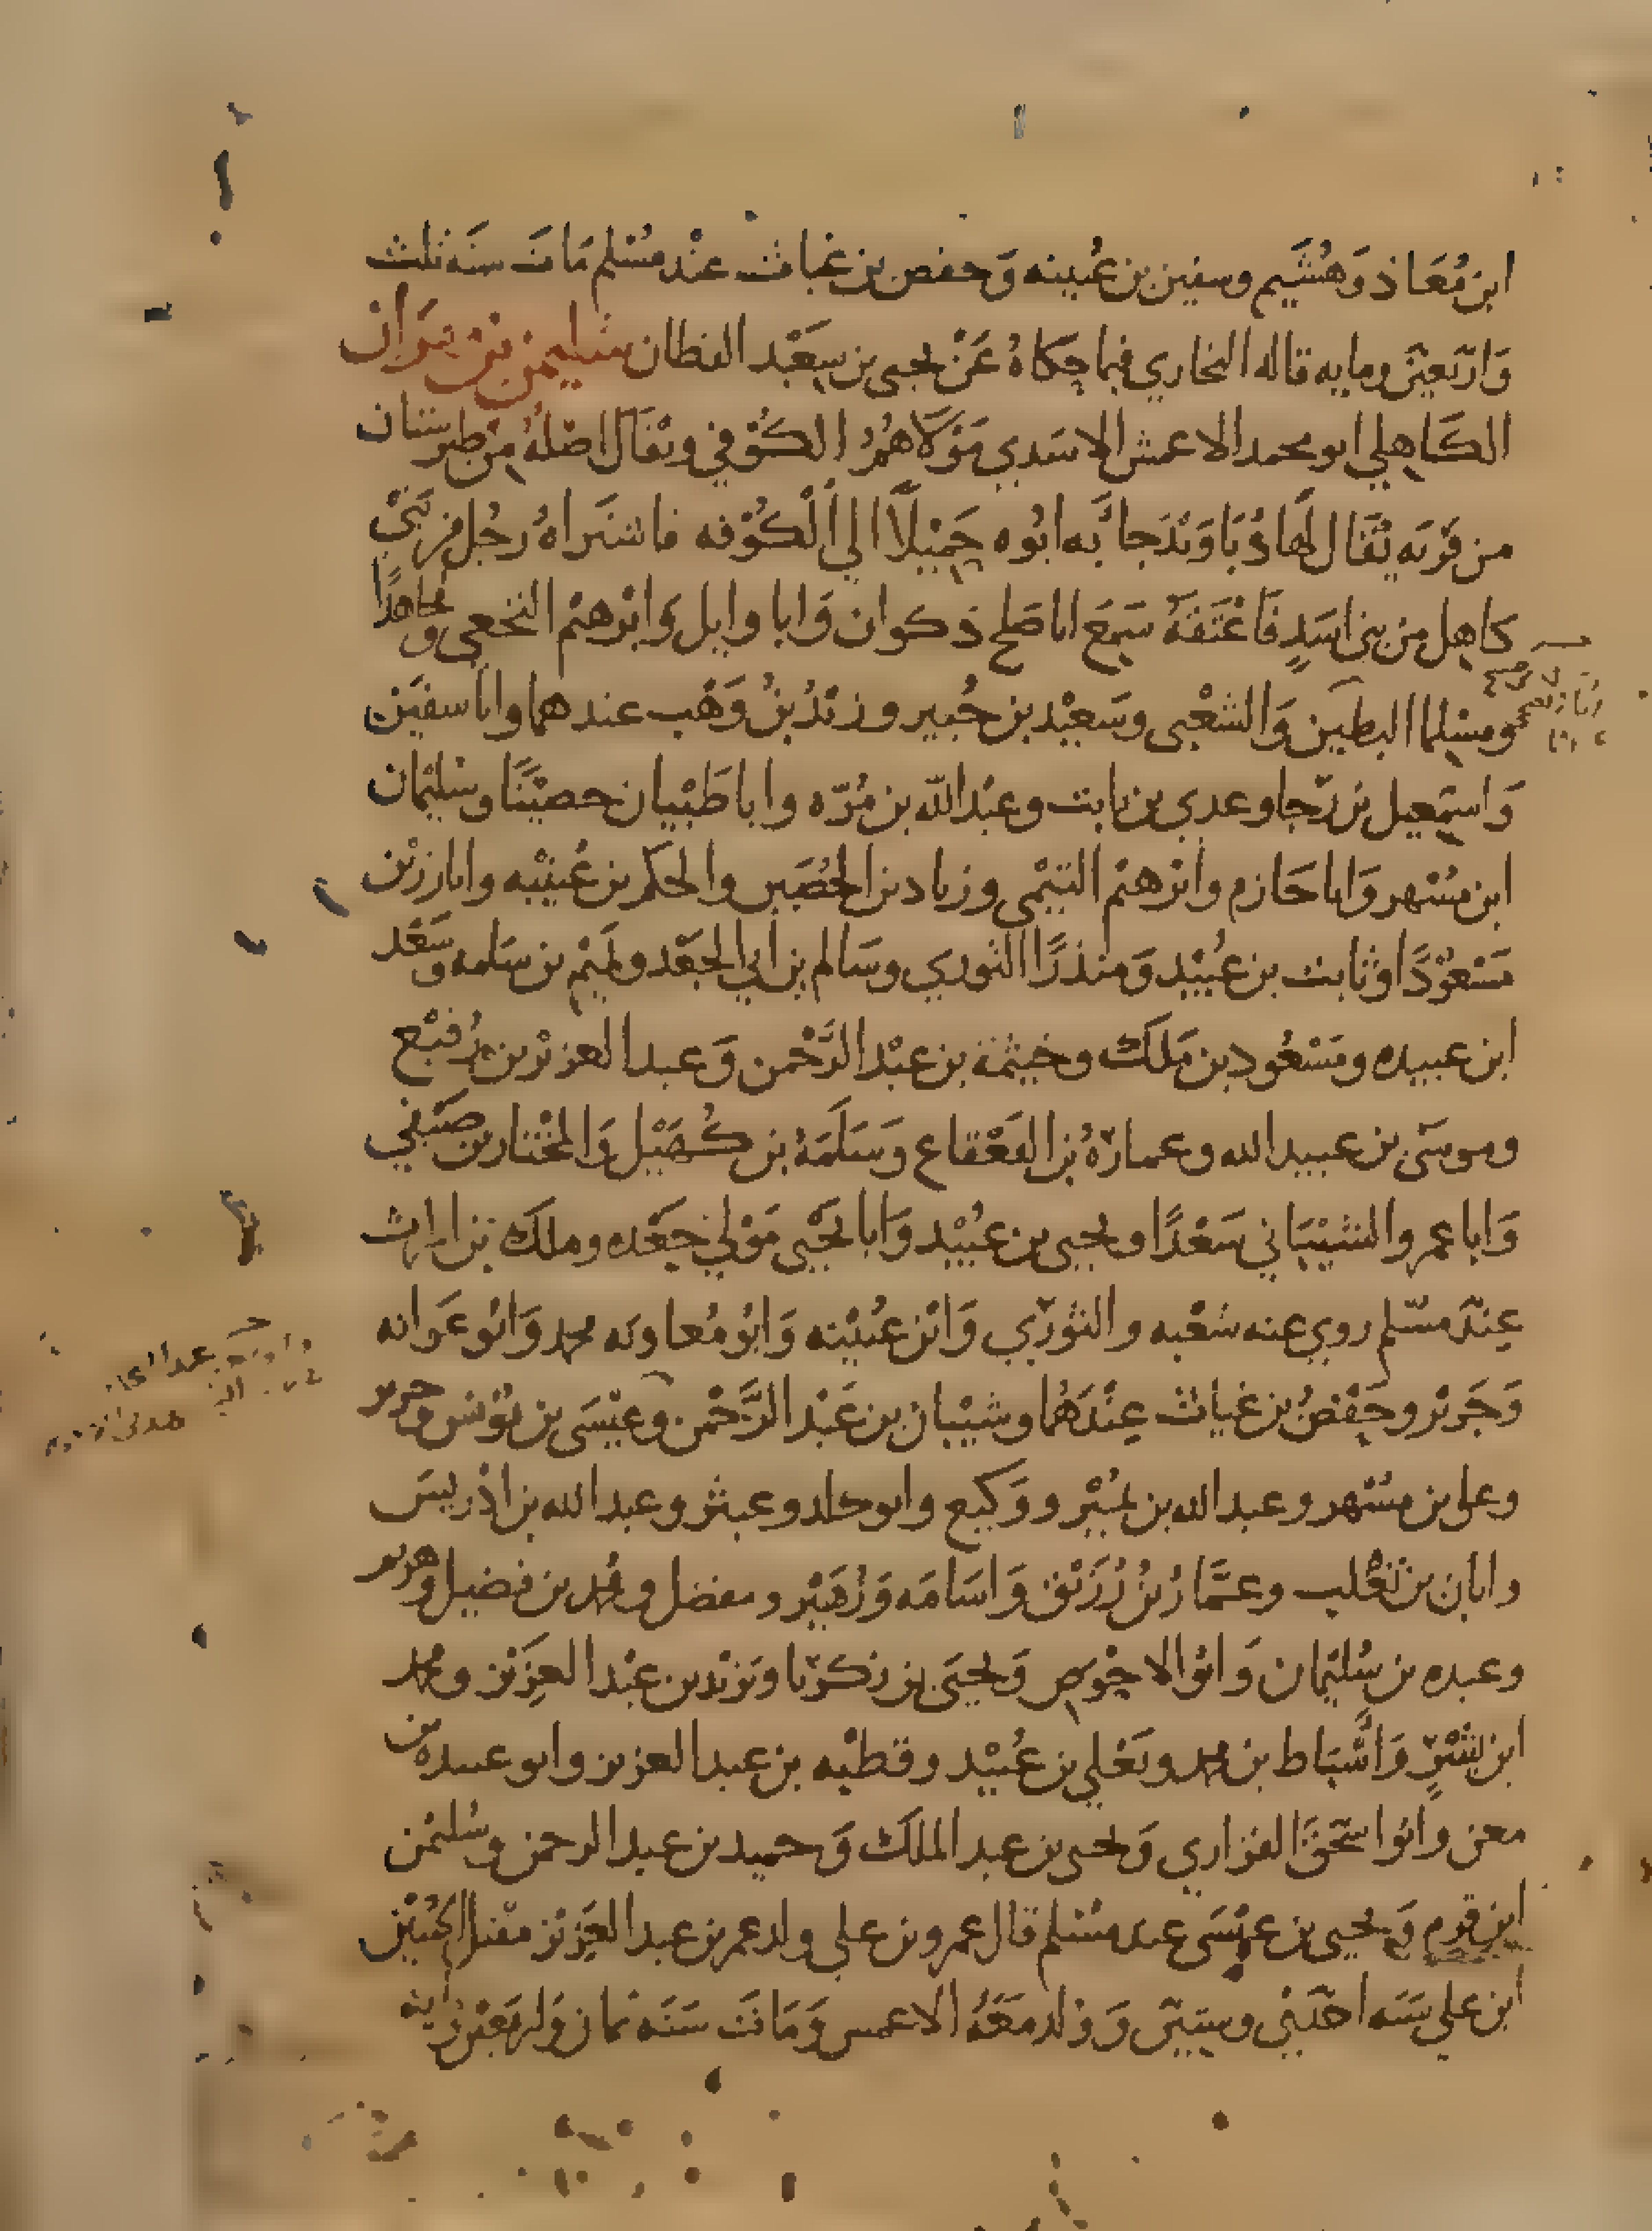 ابن مُعَاذ وَهُشَيم وسفين بن عُيينه وَحفص بن غياث عنْد مسْلم مَات سنَه ثلث
وَاربَعين ومايه قاله البخاري فيما حكاهُ عَنْ يحيى بن سعَيْد القطان سليمن بن مهرَان
الكَاهِلي ابو محمد الاعمش الاسَدي مَوْلاهُمُ الكُوْفي ويُقَال اصْلُهُ مِن طبرستان
من قرْيَه يُقَال لهَا دُبَاوَنْد جَاَ به ابُوه حَمِيْلًا الي الْكُوْفه فاشتَراهُ رجُل من بَني
كاهِل من بني اسَدٍ فَاعْتَقَهُ سَمِعَ ابا صَالح ذكوان وَابا وايل وَابْرهيْم النخعي ومجَاهدًا
ومسْلما البطين وَالشعْبي وسَعيْد بن جُبير وزيْدُ بنُ وَهْب عندهما وابا سفيَن
وَاسمعيل بن رَجا وعدي بن ثابت وعبْد الله بن مُرّه وابا ظَبْيان حصيْنًا وسُليْمان
ابن مسْهر وَابا حَازم وابْرهيْم التيْمي وزياد بن الحُصَين والحكم بن عُتيْبه وابا رزيْن
مَسْعُوْدًا وثابت بن عُبيْد وَمنذرًا الثوري وسَالم بن ابي الجعْد وتميْم بن سَلمه وسَعْد
ابن عبيده ومسْعُود بن مَلك وخيثمة بن عبْد الرَّحْمن وَعبد العزيْز بن رُفيْع
وموسَى بن عبيد الله وعمارَهُ بن القَعْقاع وَسَلَمَهُ بن كُهَيْل وَالمخْتار بن صَيْفي
وَابا عمرو الشيْبَاني سَعْدًا ويحيى بن عُبيْد وَابا يحْيَي مَوْلي جَعْده وملك بن الحارث
عِنْدَ مسْلم روي عنه شعْبه والثوْري وَابْن عُييْنه وَابُو مُعاويَه محمد وَابُو عَوانه
وَجَريْر وحَفْصُ بن غياث عِنْدَهُما وشيْبان بن عَبْد الرَّحْمن وعيْسَى بن يُونس وجرير
وعلي بن مسْهر وعبد الله بن نُميْر ووَكيع وابو خلد وعبثر وعبد الله بن ادْريسَ
وابان بن تغْلب وعمَّارُ بنُ رُزَيْق وَاسَامَه وَزُهَيْر ومفضل ومُحمد بن فضيل وهريم
وعبده بن سُليْمان وَابُو الاحْوص وَيحيَى بن زكرَيا ويَزيْد بن عبْد العزيْز ومحمد
ابن بشْرٍ وَاسْبَاط بن محمد ويَعْلي بن عُبيْد وقطبْه بن عبد العزيز وابو عبيده بن
معن وابُو اسحَق الفزاري وَيحيى بن عبد الملك وَحميد بن عبد الرحمن وسُليْمن
ابن قرم وَيحيى بن عيْسَى عند مسْلم قال عمرو بن علي ولد عمر بن عبد العزيْز مقْتل الحُسَيْن
ابن علي سَنَه احْدَي وستين وَوُلد مَعَهُ الاعمش وَمَاتَ سَنَه ثمان وَاربَعيْن ومايه